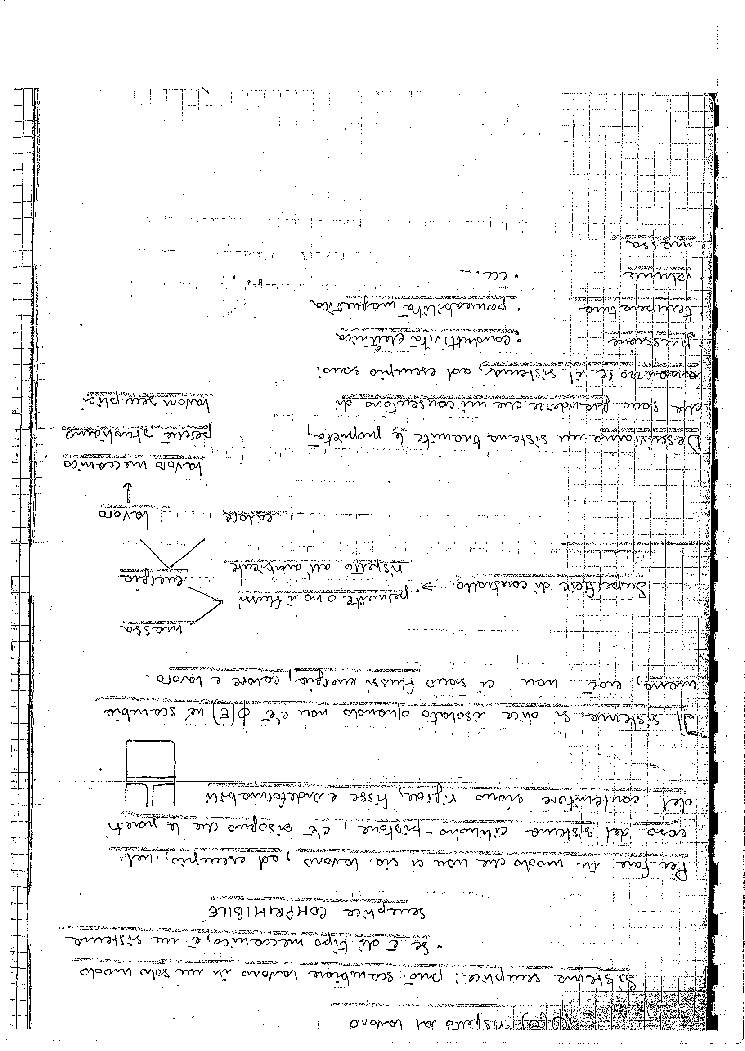 rispetto al lavoro
Sistema semplice: può scambiare lavoro in un solo modo
• Se è di tipo meccanico, è un sistema
semplice COMPRIMIBILE
Per fare in modo che non ci sia lavoro, ad esempio, nel
caso del sistema cilindro-pistone, c'è bisogno che le pareti
del contenitore siano rigide, fisse e indeformabili
Il sistema si dice isolato quando non c'è φ(E) nè scambia
cioè non ci sono flussi energia, calore e lavoro.
massa
Superficie di controllo → permette o no i flussi
rispetto all'ambiente
energia
calore
lavoro
↓
lavoro meccanico
perché studiamo
sistemi semplici
Descriviamo un sistema tramite le proprietà,
che sono grandezze che mi consentono di
se il sistema, ad esempio sono:
• pressione
• temperatura
• volume
• massa
• conduttività elettrica
• permeabilità magnetica
• ecc...